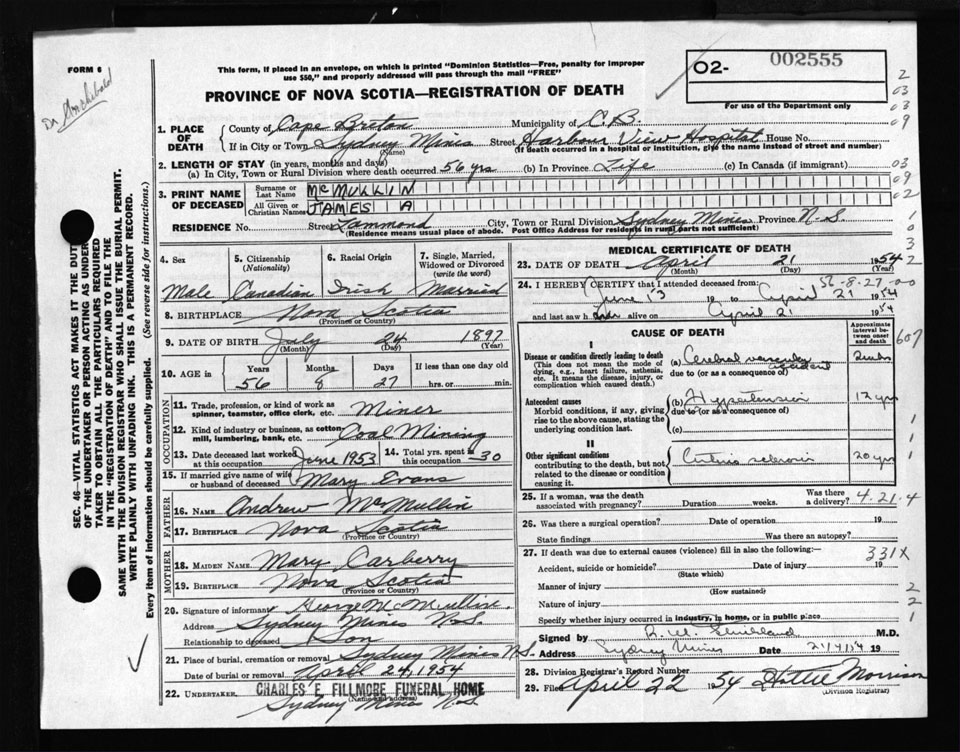 FORM 6
Dr Archibald
This form, if placed in an envelope, on which is printed "Dominion Statistics—Free, penalty for improper
use $50," and properly addressed will pass through the mail "FREE"
PROVINCE OF NOVA SCOTIA—REGISTRATION OF DEATH
O2- 002555
For use of the Department only
1. PLACE OF DEATH
County of Cape Breton Municipality of C.B.
If in City or Town Sydney Mines Street Harbour View Hospital House No.
(Name) (If death occurred in a hospital or institution, give the name instead of street and number)
2. LENGTH OF STAY (in years, months and days)
(a) In City, Town or Rural Division where death occurred 56 yrs (b) In Province Life (c) In Canada (if immigrant)
3. PRINT NAME OF DECEASED
Surname or Last Name McMULLIN
All Given or Christian Names JAMES A
RESIDENCE No. Street Tammond City, Town or Rural Division Sydney Mines Province N.S.
(Residence means usual place of abode. Post Office Address for residents in rural parts not sufficient)
4. Sex
Male
5. Citizenship (Nationality)
Canadian
6. Racial Origin
Irish
7. Single, Married, Widowed or Divorced (write the word)
Married
8. BIRTHPLACE Nova Scotia
(Province or Country)
9. DATE OF BIRTH July 24 1897
(Month) (Day) (Year)
10. AGE in Years Months Days If less than one day old
56 8 27 hrs. or min.
OCCUPATION
11. Trade, profession, or kind of work as
spinner, teamster, office clerk, etc. Miner
12. Kind of industry or business, as cotton-
mill, lumbering, bank, etc. Coal Mining
13. Date deceased last worked at this occupation June 1953 14. Total yrs. spent in this occupation 30
15. If married give name of wife
or husband of deceased Mary Evans
FATHER
16. NAME Andrew McMullin
17. BIRTHPLACE Nova Scotia
(Province or Country)
MOTHER
18. MAIDEN NAME Mary Carberry
19. BIRTHPLACE Nova Scotia
(Province or Country)
20. Signature of informant George McMullin
Address Sydney Mines N.S.
Relationship to deceased Son
21. Place of burial, cremation or removal Sydney Mines N.S.
Date of burial or removal April 24, 1954
22. UNDERTAKER CHARLES E. FILLMORE FUNERAL HOME
(Name and address)
Sydney Mines N.S.
MEDICAL CERTIFICATE OF DEATH
23. DATE OF DEATH April 21 1954
(Month) (Day) (Year)
56-8-27-00
24. I HEREBY CERTIFY that I attended deceased from:
June 13 19 to April 21 1954
and last saw him alive on April 21 1954
CAUSE OF DEATH
Approximate interval between onset and death
I
Disease or condition directly leading to death
(This does not mean the mode of dying, e.g., heart failure, asthenia, etc. It means the disease, injury, or complication which caused death.)
(a) Cerebral vascular accident 2 wks
due to (or as a consequence of)
Antecedent causes
Morbid conditions, if any, giving rise to the above cause, stating the underlying condition last.
(b) Hypertension 12 yrs
due to (or as a consequence of)
(c)
II
Other significant conditions
contributing to the death, but not related to the disease or condition causing it.
Arterio sclerosis 20 yrs
25. If a woman, was the death
associated with pregnancy? Duration weeks. Was there a delivery? 4.21.4
26. Was there a surgical operation? Date of operation 19
State findings Was there an autopsy?
27. If death was due to external causes (violence) fill in also the following:— 331X
Accident, suicide or homicide? Date of injury 19
(State which)
Manner of injury
(How sustained)
Nature of injury
Specify whether injury occurred in industry, in home, or in public place
Signed by M.D.
Address Sydney Mines Date 21/4/54 19
28. Division Registrar's Record Number
29. Filed April 22 1954 Hattie Morrison
(Division Registrar)
SEC. 46—VITAL STATISTICS ACT MAKES IT THE DUTY
OF THE UNDERTAKER OR PERSON ACTING AS UNDER-
TAKER TO OBTAIN ALL THE PARTICULARS REQUIRED
IN THE "REGISTRATION OF DEATH" AND TO FILE THE
SAME WITH THE DIVISION REGISTRAR WHO SHALL ISSUE THE BURIAL PERMIT.
WRITE PLAINLY WITH UNFADING INK. THIS IS A PERMANENT RECORD.
Every item of information should be carefully supplied. (See reverse side for instructions.)
2
03
03
09
03
09
02
1
0
3
2
607
1
1
1
2
2
1